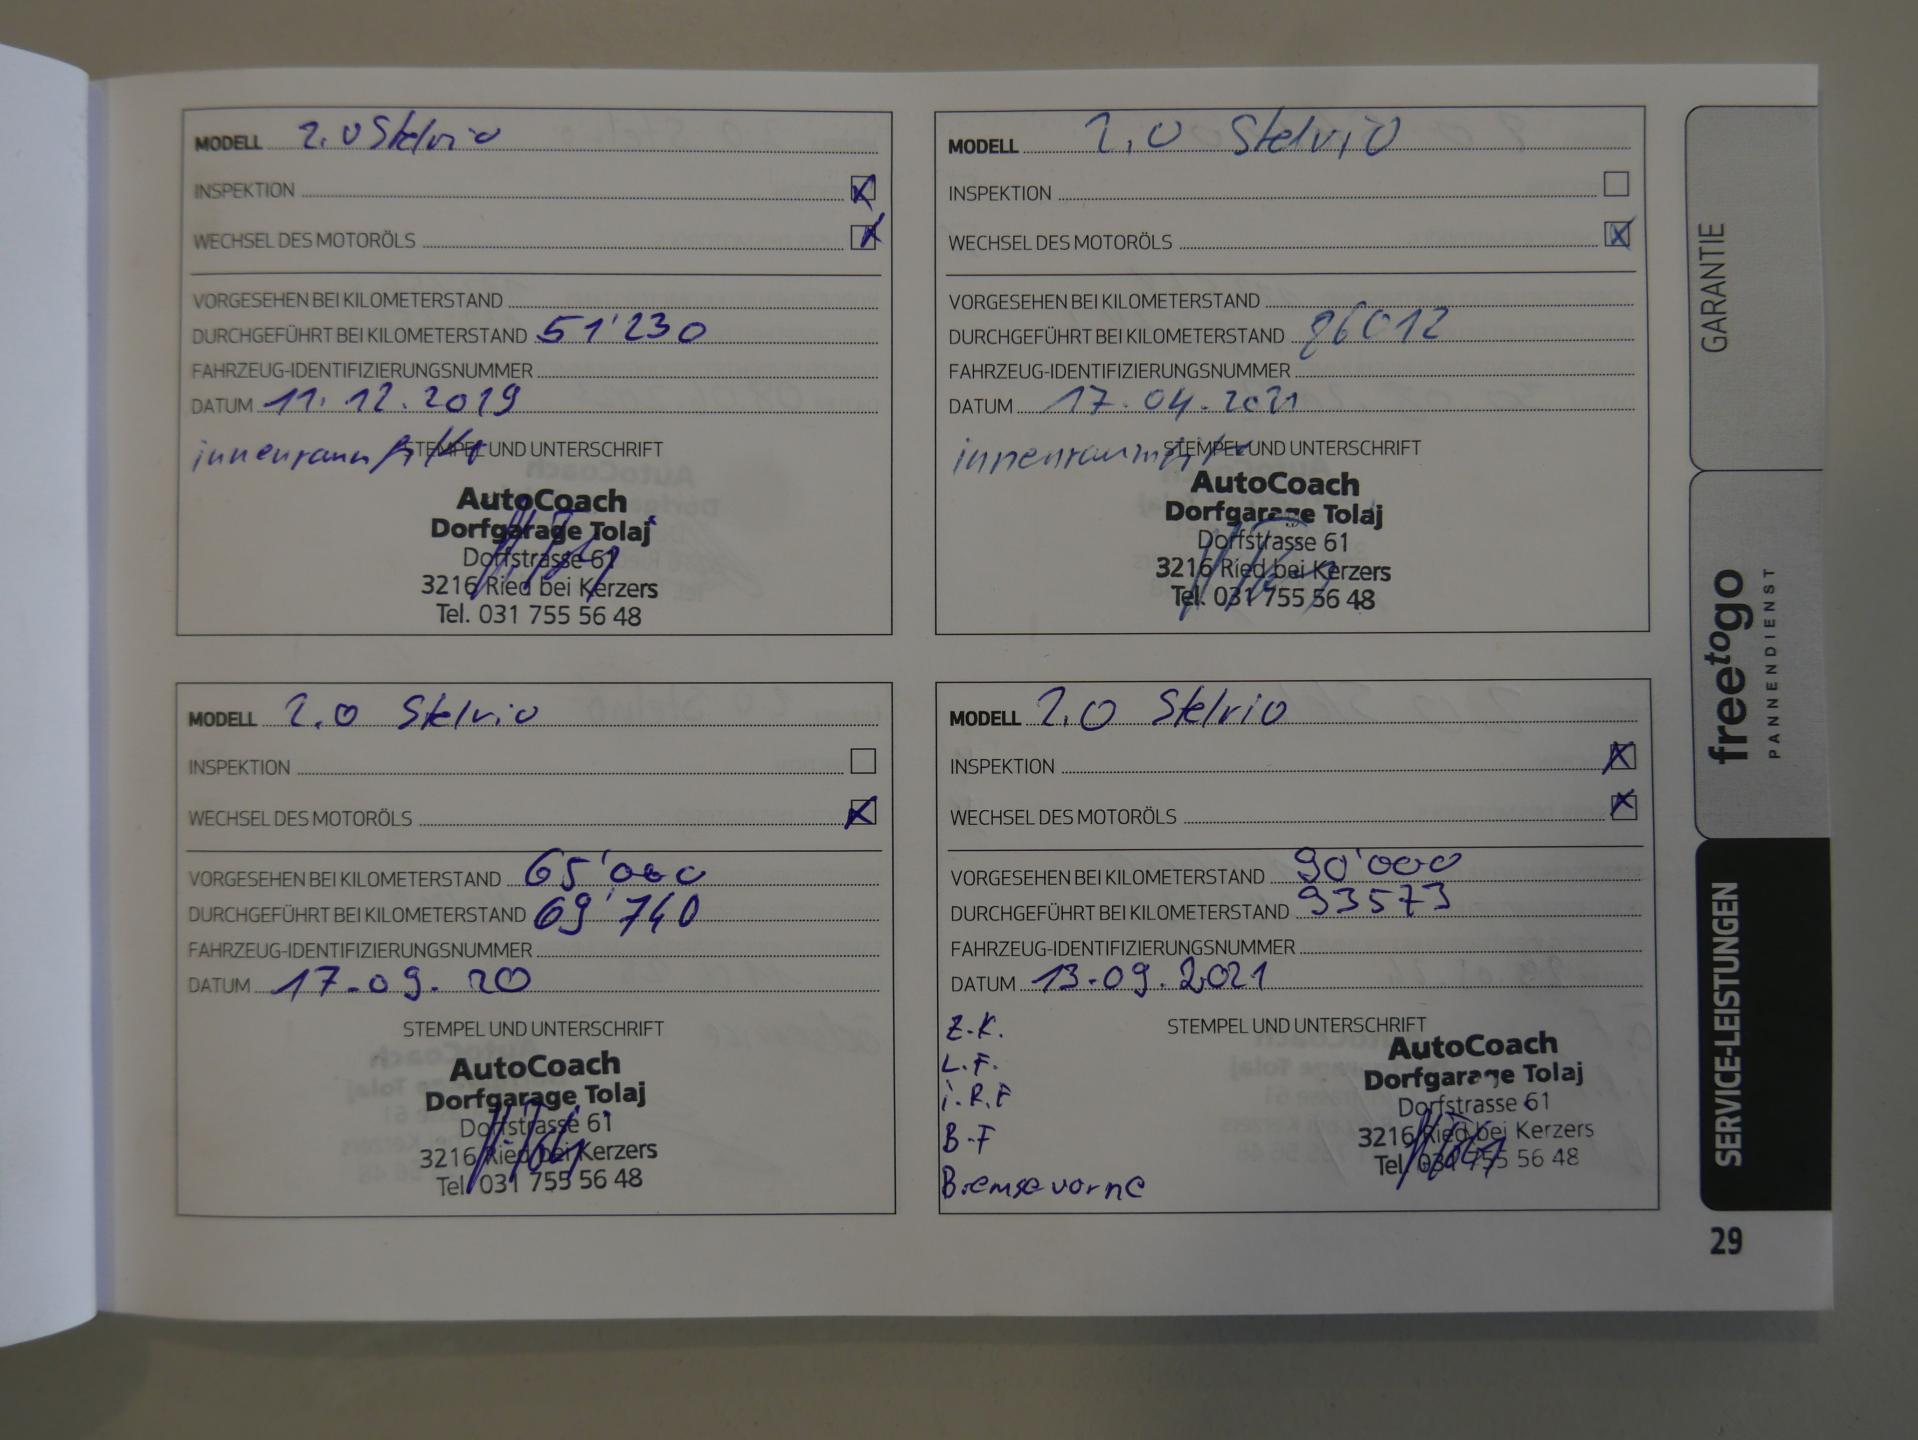 MODELL 2.0 Stelvio
INSPEKTION
WECHSEL DES MOTORÖLS
VORGESEHEN BEI KILOMETERSTAND
DURCHGEFÜHRT BEI KILOMETERSTAND 51'230
FAHRZEUG-IDENTIFIZIERUNGSNUMMER
DATUM 11.12.2019
innenraum
STEMPEL UND UNTERSCHRIFT
AutoCoach
Dorfgarage Tolaj
Dorfstrasse 61
3216 Ried bei Kerzers
Tel. 031 755 56 48
MODELL 2.0 Stelvio
INSPEKTION
WECHSEL DES MOTORÖLS
VORGESEHEN BEI KILOMETERSTAND
DURCHGEFÜHRT BEI KILOMETERSTAND 86012
FAHRZEUG-IDENTIFIZIERUNGSNUMMER
DATUM 17.04.2021
STEMPEL UND UNTERSCHRIFT
AutoCoach
Dorfgarage Tolaj
Dorfstrasse 61
3216 Ried bei Kerzers
Tel. 031 755 56 48
MODELL 2.0 Stelvio
INSPEKTION
WECHSEL DES MOTORÖLS
VORGESEHEN BEI KILOMETERSTAND 65'000
DURCHGEFÜHRT BEI KILOMETERSTAND 69'740
FAHRZEUG-IDENTIFIZIERUNGSNUMMER
DATUM 17.09.20
STEMPEL UND UNTERSCHRIFT
AutoCoach
Dorfgarage Tolaj
Dorfstrasse 61
3216 Ried bei Kerzers
Tel. 031 755 56 48
MODELL 2.0 Stelvio
INSPEKTION
WECHSEL DES MOTORÖLS
VORGESEHEN BEI KILOMETERSTAND 90'000
DURCHGEFÜHRT BEI KILOMETERSTAND 93573
FAHRZEUG-IDENTIFIZIERUNGSNUMMER
DATUM 13.09.2021
Z.K.
L.F.
i.R.F
B-F
Bremse vorne
STEMPEL UND UNTERSCHRIFT
AutoCoach
Dorfgarage Tolaj
Dorfstrasse 61
3216 Ried bei Kerzers
Tel. 031 755 56 48
GARANTIE
freetogo
PANNENDIENST
SERVICE-LEISTUNGEN
29